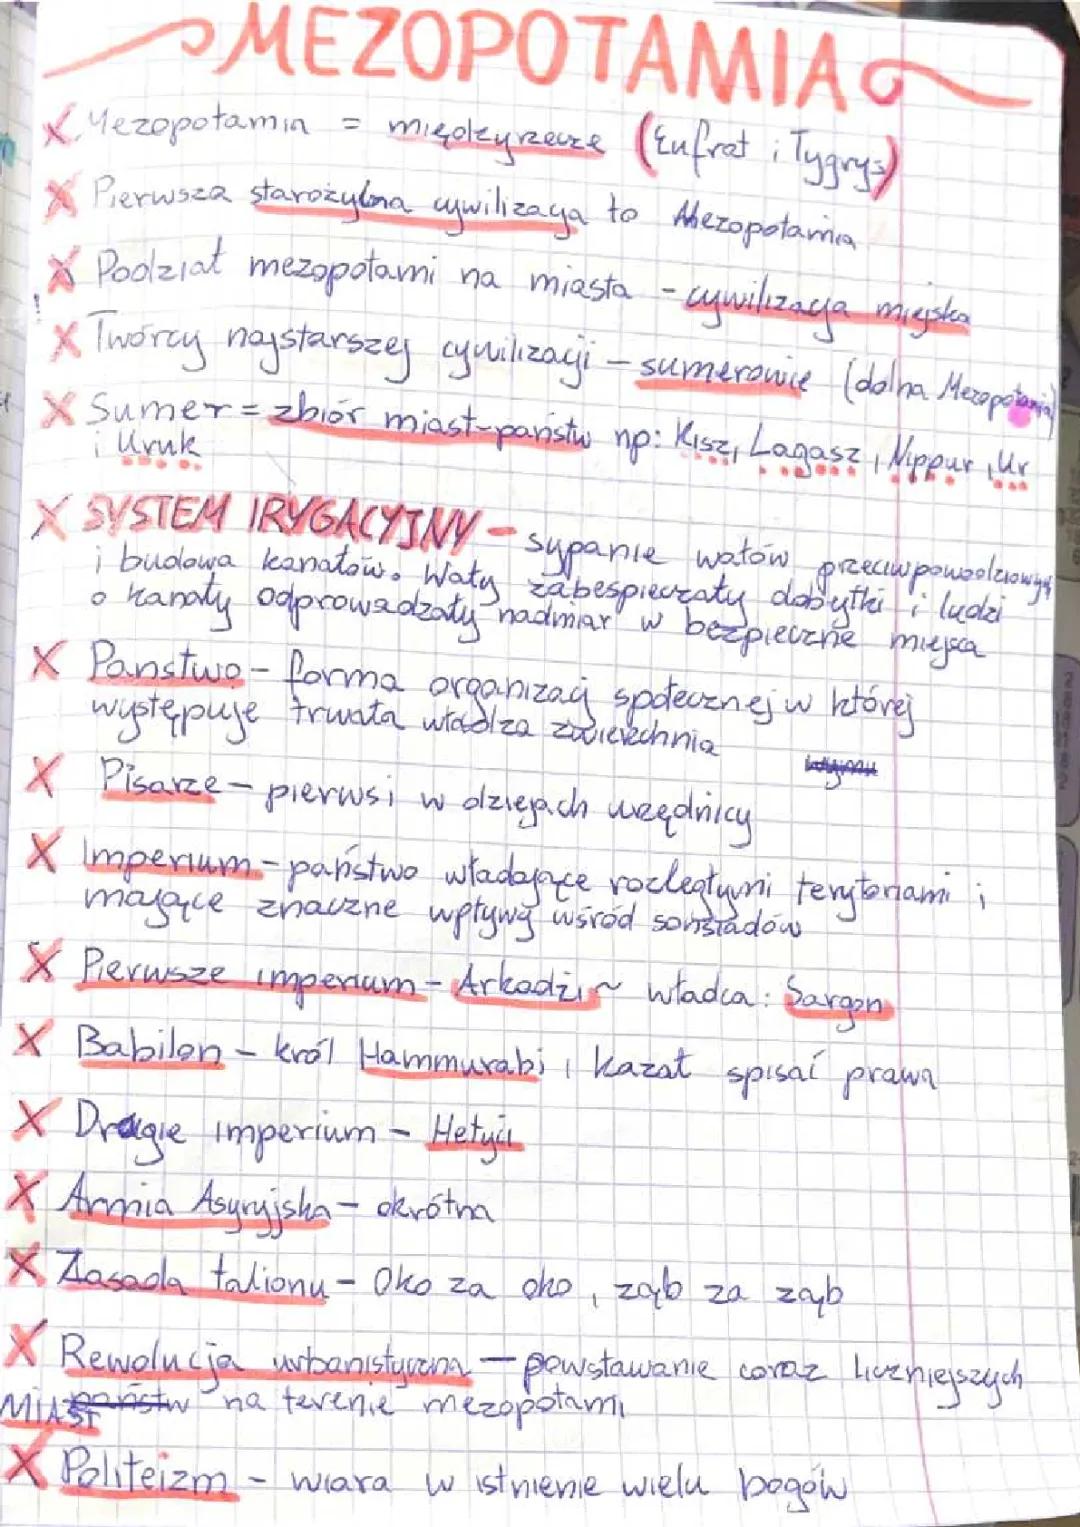 MEZOPOTAMIA
X Mezopotamia = międzyrzecze (Eufrat i Tygrys)
X Pierwsza starożytna cywilizacja to Mezopotamia
X Podział mezopotami na miasta - cywilizacja miejska
X Twórcy najstarszej cywilizacji - sumerowie (dolna Mezopotamia)
X Sumer = zbiór miast-państw np: Kisz, Lagasz, Nippur, Ur
i Uruk
X SYSTEM IRYGACYJNY - sypanie wałów przeciwpowodziowych
i budowa kanałów. Wały zabespieczały dobytki i ludzi
a kanały odprowadzały nadmiar w bezpieczne miejsca
X Panstwo - forma organizacj społecznej w której
występuje trwała władza zwierzchnia
X Pisarze - pierwsi w dziejach urzędnicy
X Imperium - państwo władające rozległymi terytoriami i
mające znaczne wpływy wśród sonsiadów
X Pierwsze imperium - Arkadzi ~ władca: Sargon
X Babilon - król Hammurabi, kazał spisać prawa
X Drugie imperium - Hetyci
X Armia Asyryjska - okrótna
X Zasada talionu - Oko za oko, ząb za ząb
X Rewolucja urbanistyczna - powstawanie coraz liczniejszych
MIAST państw na terenie mezopotami
X Politeizm - wiara w istnienie wielu bogów